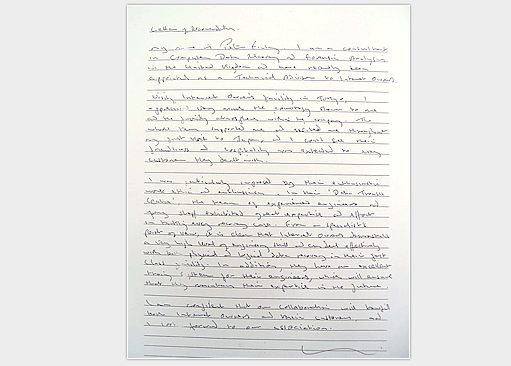 Letter of Recommendation.
My name is Peter I am a consultant
in Computer Data Recovery and Forensic Analysis
in the United Kingdom and have recently been
appointed as a Technical Advisor to Internet Owners.
Visiting Internet Owners facility in Tokyo, I
appreciated very much the courtesy shown to me
and the friendly atmosphere within the company. The
whole team supported me and assisted me throughout
my first visit to Japan, and I could see their
friendliness and hospitality was extended to every
customer they dealt with.
I was particularly impressed by their enthusiastic
work ethic and In their 'Data Trouble
Centre' the team of experienced engineers and
young staff exhibited great expertise and effort
in every recovery case. From a specialist's
point of view, it is clear that Internet Owners
a very high level of engineering skill and can deal effectively
with both physical and logical data recovery in their first
class facility. In addition, they have an excellent
training system for their engineers, which will ensure
that they maintain their expertise in the future.
I am confident that our collaboration will benefit
both Internet Owners and their customers, and
I look forward to our association.